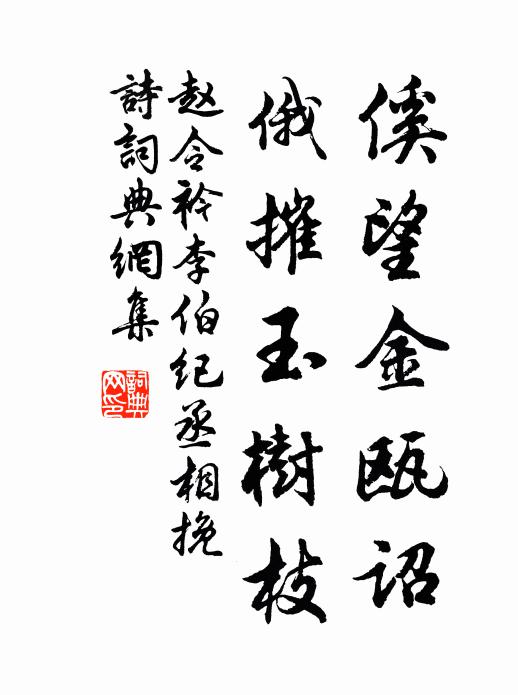 傒望金瓯詔
俄摧玉樹枝
赵令衿李伯纪丞相挽
詩詞典網集
詞典
网印